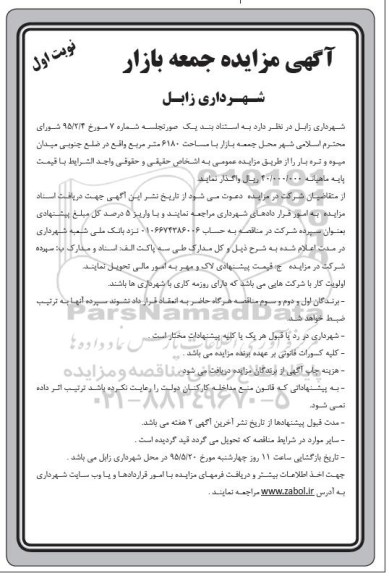 نوبت اول
آگهی مزایده جمعه بازار
شهرداری زابل
شهرداری زابل در نظر دارد به استناد بند یک صورتجلسه شماره ۷ مورخ ۹۵/۲/۴ شورای
محترم اسلامی شهر محل جمعه بازار با مساحت ۶۱۸۰ متر مربع واقع در ضلع جنوبی میدان
میوه و تره بار را از طریق مزایده عمومی به اشخاص حقیقی و حقوقی واجد الشرایط با قیمت
پایه ماهیانه ۴۰/۰۰۰/۰۰۰ ریال واگذار نماید.
از متقاضیان شرکت در مزایده دعوت می شود از تاریخ نشر این آگهی جهت دریافت اسناد
مزایده به امور قرار دادهای شهرداری مراجعه نمایند و با واریز ۵ درصد کل مبلغ پیشنهادی
بعنوان سپرده شرکت در مناقصه به حساب ۰۱۰۶۶۷۴۳۸۶۰۰۶ نزد بانک ملی شعبه شهرداری
در مدت اعلام شده به شرح ذیل و کل مدارک طی سه پاکت الف: اسناد و مدارک ب: سپرده
شرکت در مزایده ج: قیمت پیشنهادی لاک و مهر به امور مالی تحویل نمایند.
اولویت کار با شرکت هایی می باشد که دارای روزمه کاری با شهرداری ها باشند.
- برندگان اول و دوم و سوم مناقصه هرگاه حاضر به انعقاد قرار داد نشوند سپرده آنها به ترتیب
ضبط خواهد شد.
- شهرداری در رد یا قبول هر یک یا کلیه پیشنهادات مختار است.
- کلیه کسورات قانونی بر عهده برنده مزایده می باشد.
- هزینه چاپ آگهی از برندگان مزایده دریافت می شود.
- به پیشنهاداتی که قانون منع مداخله کارکنان دولت را رعایت نکرده باشد ترتیب اثر داده
نمی شود.
- مدت قبول پیشنهادها از تاریخ نشر آخرین آگهی ۲ هفته می باشد.
- سایر موارد در شرایط مناقصه که تحویل می گردد قید گردیده است.
- تاریخ بازگشایی ساعت ۱۱ روز چهارشنبه مورخ ۹۵/۵/۲۰ در محل شهرداری زابل می باشد.
جهت اخذ اطلاعات بیشتر و دریافت فرمهای مزایده با امور قراردادها و یا وب سایت شهرداری
به آدرس www.zabol.ir مراجعه نمایند.
ParsNamadData
۰۲۱-۸۸۳۴۹۶۷۰-۵